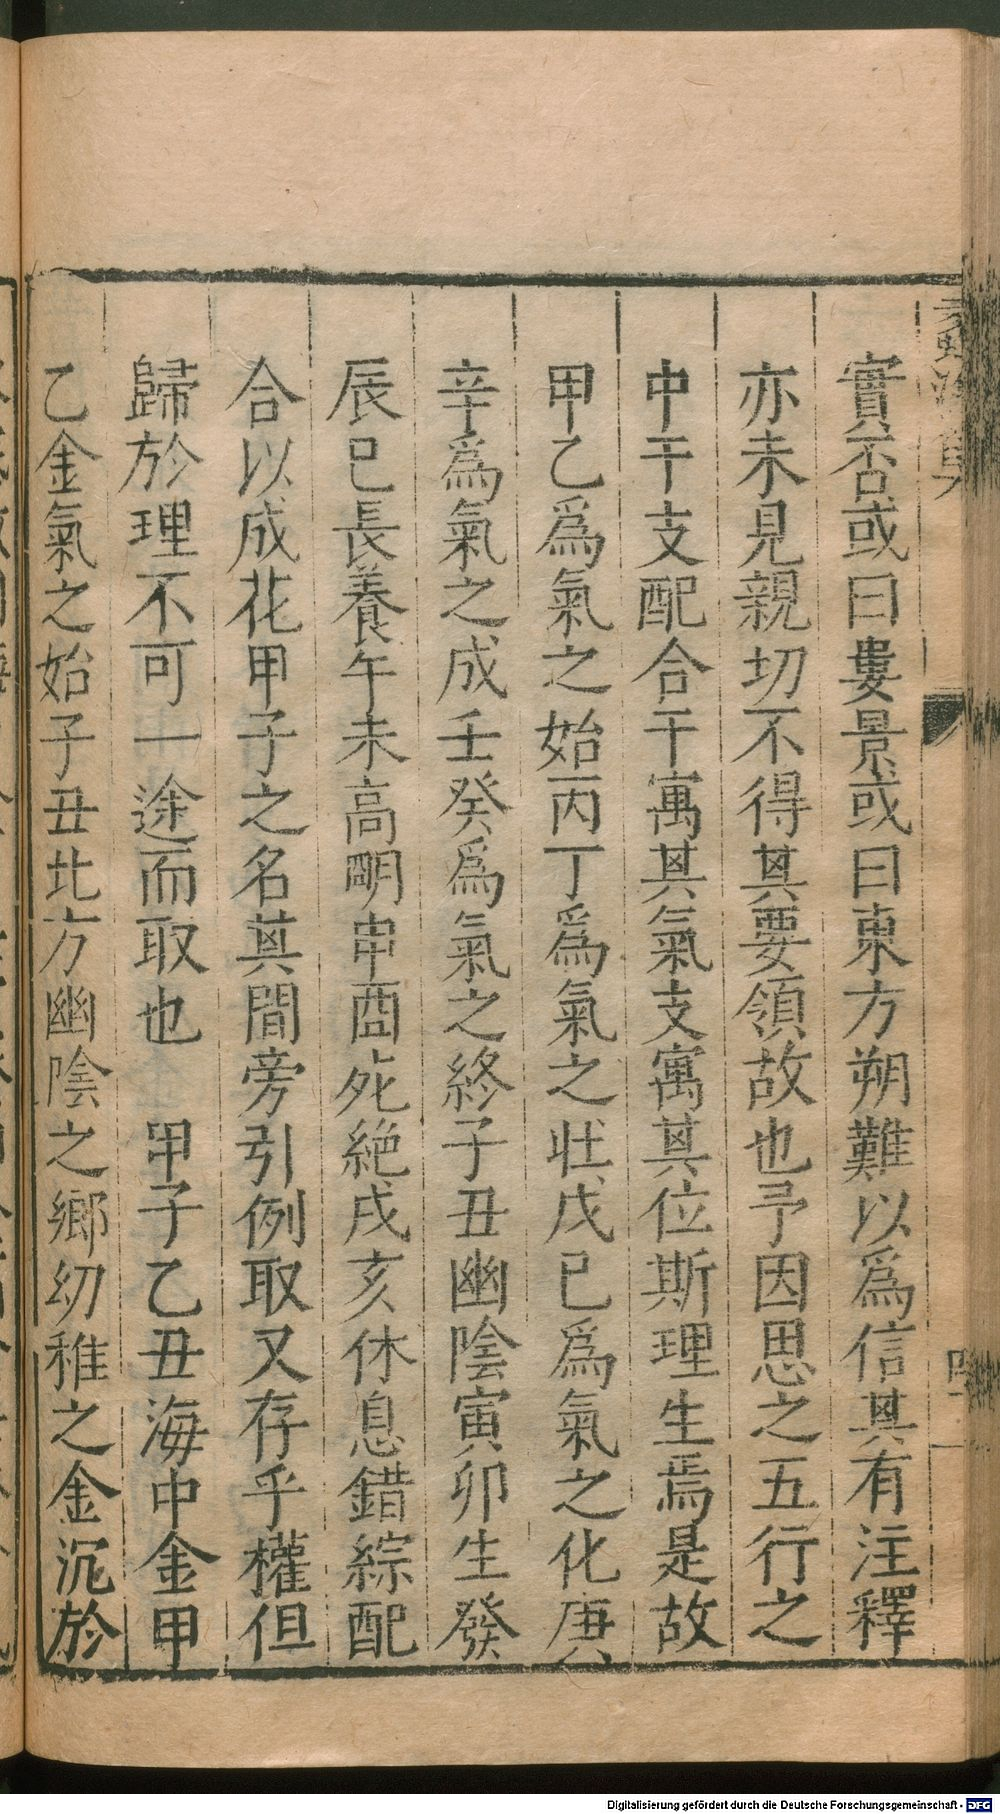 實否或曰婁景或曰東方朔難以爲信其有注釋
亦未見親切不得其要領故也予因思之五行之
中干支配合干寓其氣支寓其位斯理生焉是故
甲乙爲氣之始丙丁爲氣之壯戊已爲氣之化庚
辛爲氣之成壬癸爲氣之終子丑幽陰寅卯生發
辰巳長養午未高明申酉死絶戌亥休息錯綜配
合以成花甲子之名其間旁引例取又存乎權但
歸於理不可一途而取也　甲子乙丑海中金甲
乙金氣之始子丑北方幽陰之鄉幼稚之金沉於
Digitalisierung gefördert durch die Deutsche Forschungsgemeinschaft - DFG